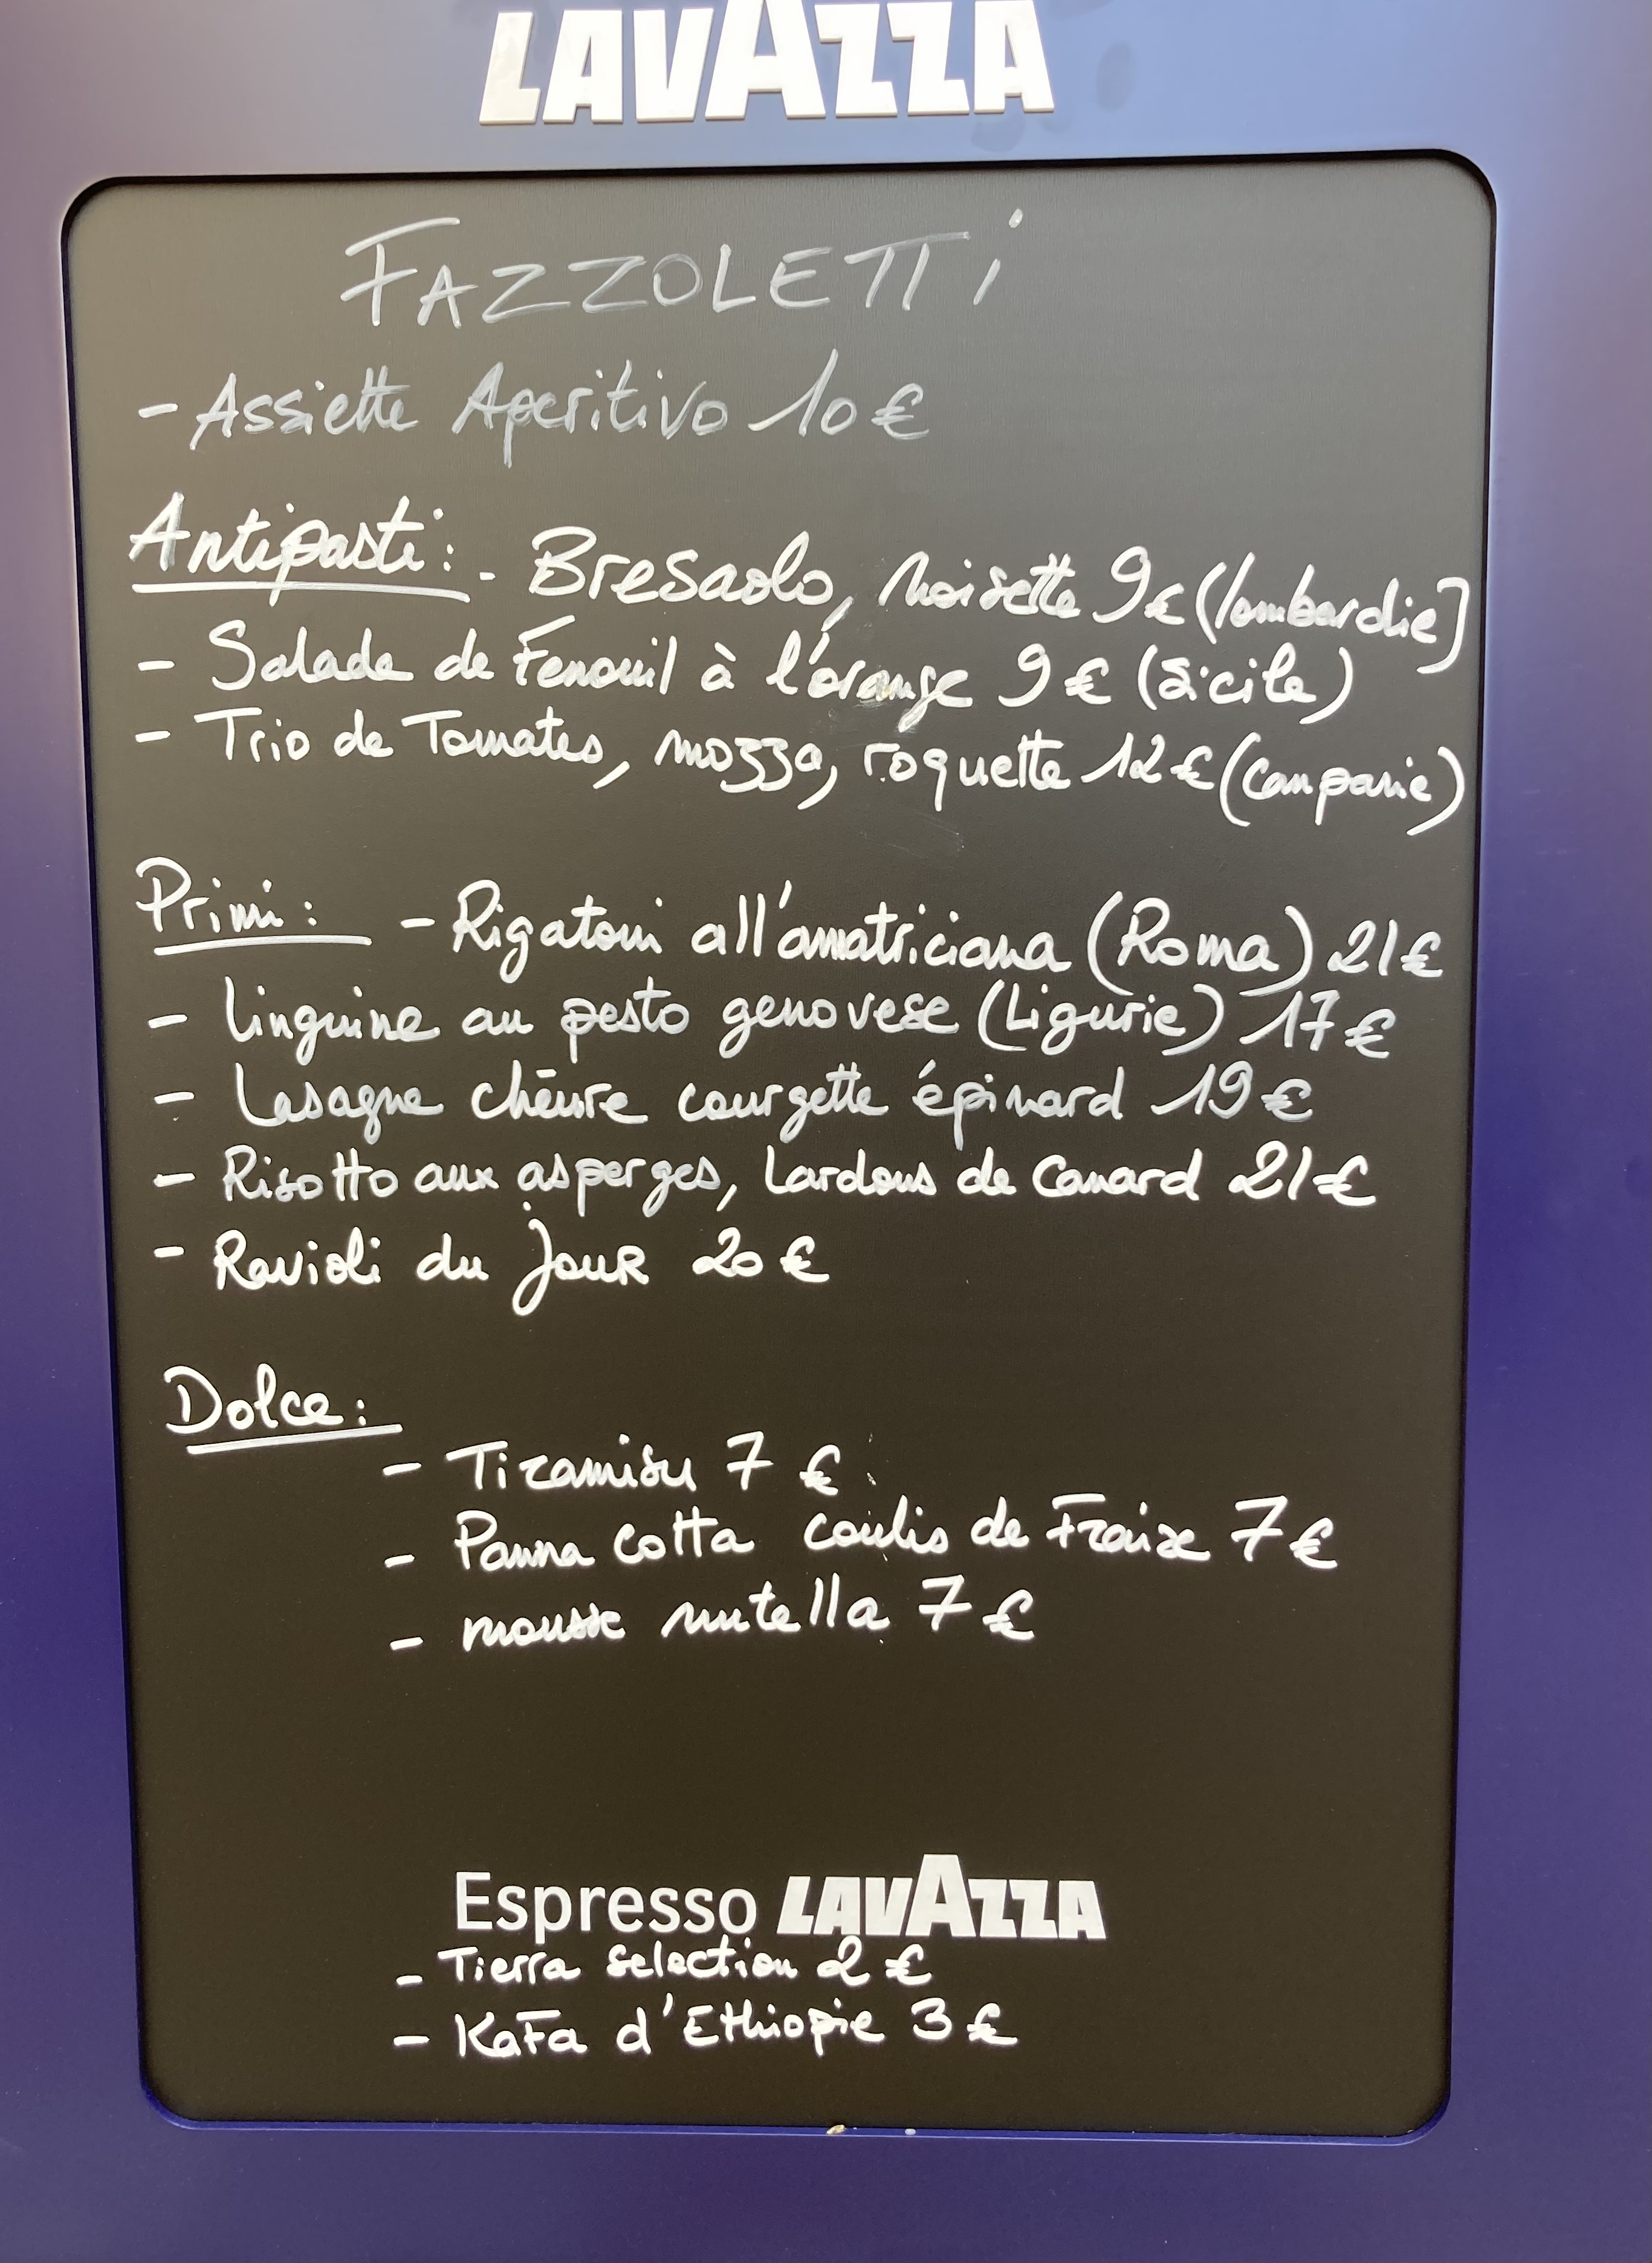 LAVAZZA
FAZZOLETTi
- Assiette Aperitivo 10€
Antipasti: - Bresaola, noisette 9€ (lombardie)
- Salade de Fenouil à l'orange 9€ (Sicile)
- Trio de Tomates, mozza, roquette 12€ (Campanie)
Primi: - Rigatoni all'amatriciana (Roma) 21€
- Linguine au pesto genovese (Ligurie) 17€
- Lasagne chèvre courgette épinard 19€
- Risotto aux asperges, Lardons de Canard 21€
- Ravioli du jour 20€
Dolce:
- Tiramisu 7€
- Panna cotta coulis de Fraise 7€
- mousse nutella 7€
Espresso LAVAZZA
- Tierra selection 2€
- KaFa d'Ethiopie 3€